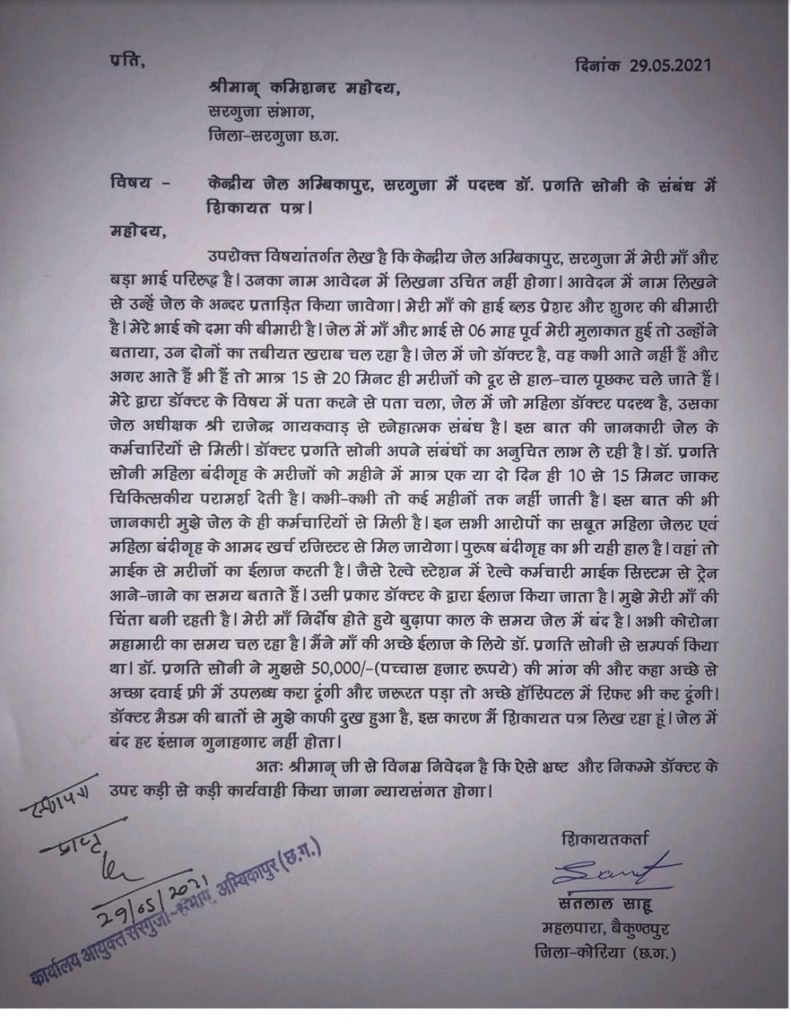 प्रति,
दिनांक 29.05.2021
श्रीमान् कमिशनर महोदय,
सरगुजा संभाग,
जिला-सरगुजा छ.ग.
विषय - केन्द्रीय जेल अम्बिकापुर, सरगुजा में पदस्थ डॉ. प्रगति सोनी के संबंध में
शिकायत पत्र।
महोदय,
उपरोक्त विषयांतर्गत लेख है कि केन्द्रीय जेल अम्बिकापुर, सरगुजा में मेरी माँ और
बड़ा भाई परिरूद्ध है। उनका नाम आवेदन में लिखना उचित नहीं होगा। आवेदन में नाम लिखने
से उन्हें जेल के अन्दर प्रताड़ित किया जावेगा। मेरी माँ को हाई ब्लड प्रेशर और शुगर की बीमारी
है। मेरे भाई को दमा की बीमारी है। जेल में माँ और भाई से 06 माह पूर्व मेरी मुलाकात हुई तो उन्होंने
बताया, उन दोनों का तबीयत खराब चल रहा है। जेल में जो डॉक्टर है, वह कभी आते नहीं हैं और
अगर आते हैं भी हैं तो मात्र 15 से 20 मिनट ही मरीजों को दूर से हाल-चाल पूछकर चले जाते हैं।
मेरे द्वारा डॉक्टर के विषय में पता करने से पता चला, जेल में जो महिला डॉक्टर पदस्थ है, उसका
जेल अधीक्षक श्री राजेन्द्र गायकवाड़ से स्नेहात्मक संबंध है। इस बात की जानकारी जेल के
कर्मचारियों से मिली। डॉक्टर प्रगति सोनी अपने संबंधों का अनुचित लाभ ले रही है। डॉ. प्रगति
सोनी महिला बंदीगृह के मरीजों को महीने में मात्र एक या दो दिन ही 10 से 15 मिनट जाकर
चिकित्सकीय परामर्श देती है। कभी-कभी तो कई महीनों तक नहीं जाती है। इस बात की भी
जानकारी मुझे जेल के ही कर्मचारियों से मिली है। इन सभी आरोपों का सबूत महिला जेलर एवं
महिला बंदीगृह के आमद खर्च रजिस्टर से मिल जायेगा। पुरूष बंदीगृह का भी यही हाल है। वहां तो
माईक से मरीजों का ईलाज करती है। जैसे रेल्वे स्टेशन में रेल्वे कर्मचारी माईक सिस्टम से ट्रेन
आने-जाने का समय बताते हैं। उसी प्रकार डॉक्टर के द्वारा ईलाज किया जाता है। मुझे मेरी माँ की
चिंता बनी रहती है। मेरी माँ निर्दोष होते हुये बुढ़ापा काल के समय जेल में बंद है। अभी कोरोना
महामारी का समय चल रहा है। मैंने माँ की अच्छे ईलाज के लिये डॉ. प्रगति सोनी से सम्पर्क किया
था। डॉ. प्रगति सोनी ने मुझसे 50,000/-(पच्चास हजार रूपये) की मांग की और कहा अच्छे से
अच्छा दवाई फ्री में उपलब्ध करा दूंगी और जरूरत पड़ा तो अच्छे हॉस्पिटल में रिफर भी कर दूंगी।
डॉक्टर मैडम की बातों से मुझे काफी दुख हुआ है, इस कारण मैं शिकायत पत्र लिख रहा हूं। जेल में
बंद हर इंसान गुनाहगार नहीं होता।
अतः श्रीमान् जी से विनम्र निवेदन है कि ऐसे भ्रष्ट और निकम्मे डॉक्टर के
उपर कड़ी से कड़ी कार्यवाही किया जाना न्यायसंगत होगा।
प्राप्त
29/05/2021
कार्यालय आयुक्त सरगुजा-संभाग, अम्बिकापुर (छ.ग.)
शिकायतकर्ता
Sant
संतलाल साहू
महलपारा, बैकुण्ठपुर
जिला-कोरिया (छ.ग.)